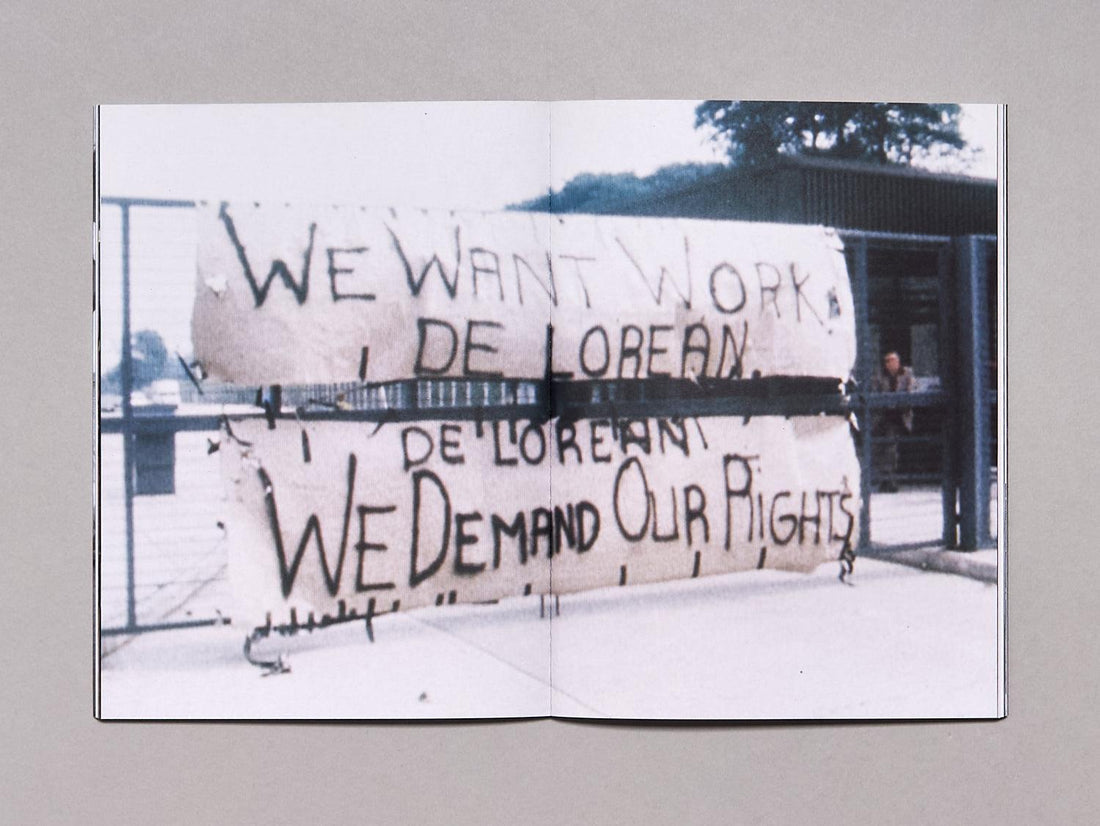 WE WANT WORK.
DE LOREAN.
DE LOREAN
WE DEMAND OUR RIGHTS